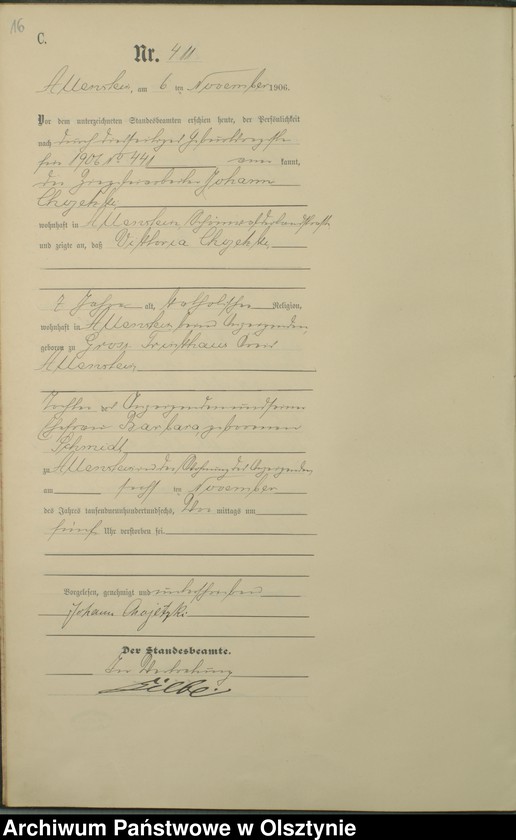 16
C.
Nr. 411
Allenstein, am 6 ten November 1906.
Vor dem unterzeichneten Standesbeamten erschien heute, der Persönlichkeit
nach durch diesseitiges Geburtsregister
pro 1906 No 441 kannt,
der Johann
wohnhaft in Allenstein
und zeigte an, daß Viktoria
7 Jahre alt, katholischer Religion,
wohnhaft in Allenstein beim Anzeigenden,
geboren zu Gross Kreis
Allenstein
Tochter des Anzeigenden und seiner
Ehefrau Barbara geborenen
Schmidt
zu Allenstein in der Wohnung des Anzeigenden,
am sechs ten November
des Jahres tausendneunhundertundsechs, Vor mittags um
fünf Uhr verstorben sei.
Vorgelesen, genehmigt und unterschrieben
Johann Chojetzki
Der Standesbeamte.
In Vertretung
Archiwum Państwowe w Olsztynie